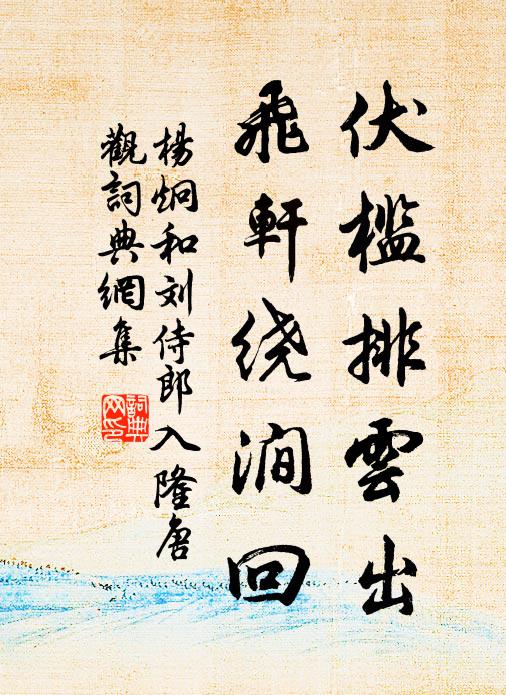 伏槛排雲出
飛軒绕澗回
楊炯和刘侍郎入隆唐
觀詞典網集
詞典网印